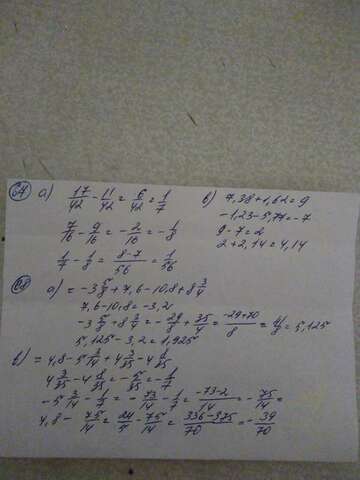 67 а) 17/42 - 11/42 = 6/42 = 1/7
7/16 - 9/16 = -2/16 = -1/8
1/7 - 1/8 = 8-7/56 = 1/56
в) 7,38+1,62=9
-1,23-5,77=-7
9-7=2
2+2,14=4,14
а) = -3 5/8 + 7,6 - 10,8 + 8 3/4
7,6-10,8=-3,2
-3 5/8 + 8 3/4 = -29/8 + 35/4 = -29+70/8 = 41/8 = 5,125
5,125-3,2=1,925
в) = 4,8 - 5 3/14 + 4 3/35 - 4 8/35
4 3/35 - 4 8/35 = -5/35 = -1/7
-5 3/14 - 1/7 = -73/14 - 1/7 = -73-2/14 = -75/14 =
4,8 - 75/14 = 24/5 - 75/14 = 336-375/70 = -39/70